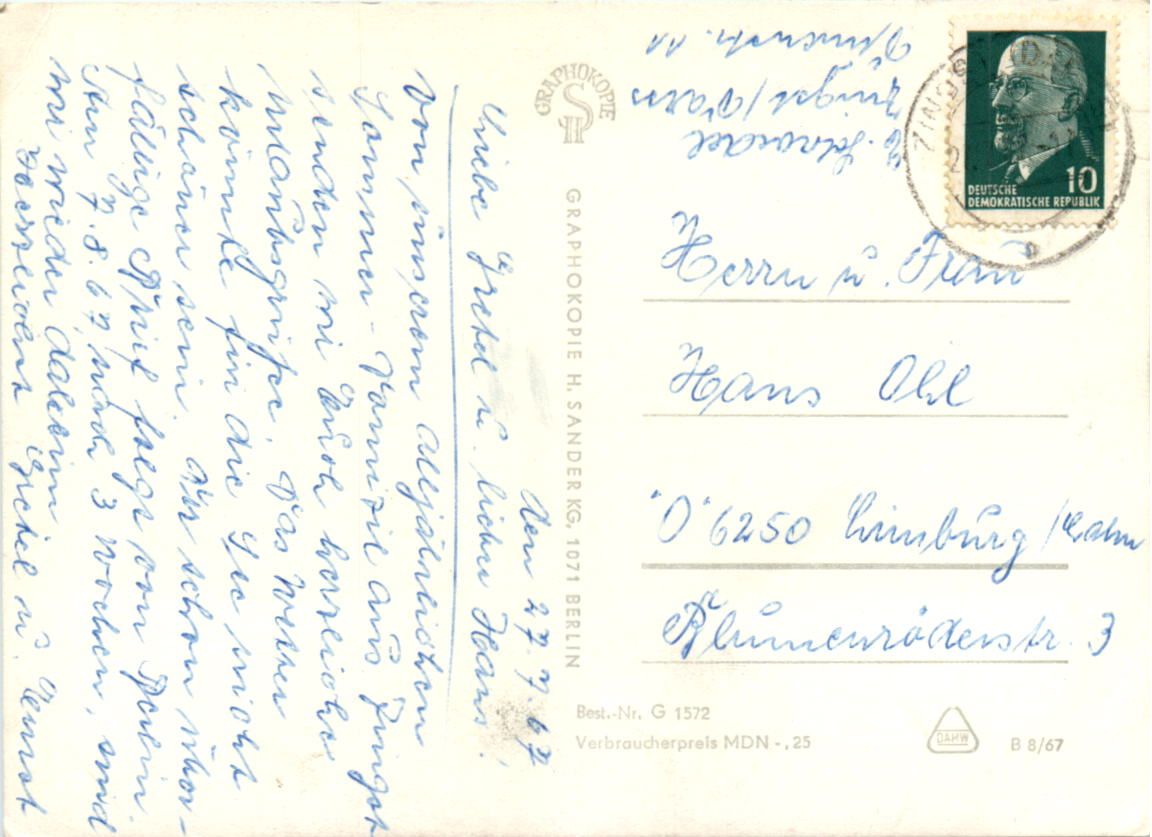 Den 27.7.67
Liebe Gretel u. lieber Hans!
Von unserem alljährlichen
Sommer-Domizil aus Zingst
senden wir Euch herzliche
Urlaubsgrüße. Das Wetter
könnte für die See nicht
schöner sein. Ist schon über-
fällige Post folgt von Berlin.
Am 7.8.67, nach 3 Wochen, sind
wir wieder daheim
Herzlichst Gretel u. Ernst
GRAPHOKOPIE
GRAPHOKOPIE H. SANDER KG, 1071 BERLIN
Zingst / Darss
DEUTSCHE
DEMOKRATISCHE REPUBLIK
10
ZINGST
Herrn u. Frau
Hans Ohl
"O" 6250 Limburg / Lahn
Blumenröderstr. 3
Best.-Nr. G 1572
Verbraucherpreis MDN -,25
DAHW
B 8/67